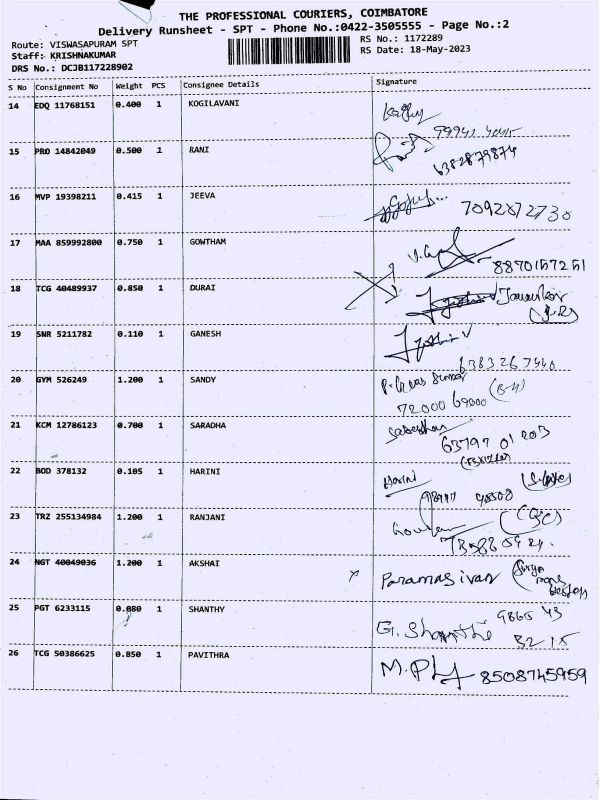 THE PROFESSIONAL COURIERS, COIMBATORE
Delivery Runsheet - SPT - Phone No.:0422-3505555 - Page No.:2
Route: VISWASAPURAM SPT
RS No.: 1172289
Staff: KRISHNAKUMAR
RS Date: 18-May-2023
DRS No.: DCJB117228902
S No Consignment No Weight PCS Consignee Details Signature
14 EDQ 11768151 0.400 1 KOGILAVANI
15 PRO 14842049 0.500 1 RANI
6382879874
16 MVP 19398211 0.415 1 JEEVA
7092872730
17 MAA 859992800 0.750 1 GOWTHAM
8870157251
18 TCG 40489937 0.850 1 DURAI
19 SNR 5211782 0.110 1 GANESH
6383267440
20 GYM 526249 1.200 1 SANDY
72000 69000
21 KCM 12786123 0.700 1 SARADHA
63797 01203
22 BOD 378132 0.105 1 HARINI
Harini
23 TRZ 255134984 1.200 1 RANJANI
24 NGT 40049036 1.200 1 AKSHAI
Paramasivan
25 PGT 6233115 0.080 1 SHANTHY
9865 43
G. Shanthi 32 15
26 TCG 50386625 0.850 1 PAVITHRA
8508745959